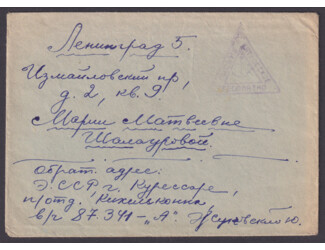 Ленинград 5.
Измайловский пр,
д. 2, кв. 9.
Марии Матвеевне
Шалауровой.
обрат. адрес:
ЭССР г. Курессаре,
п/отд. "Кихельконна"
в/ч 87341-"А".